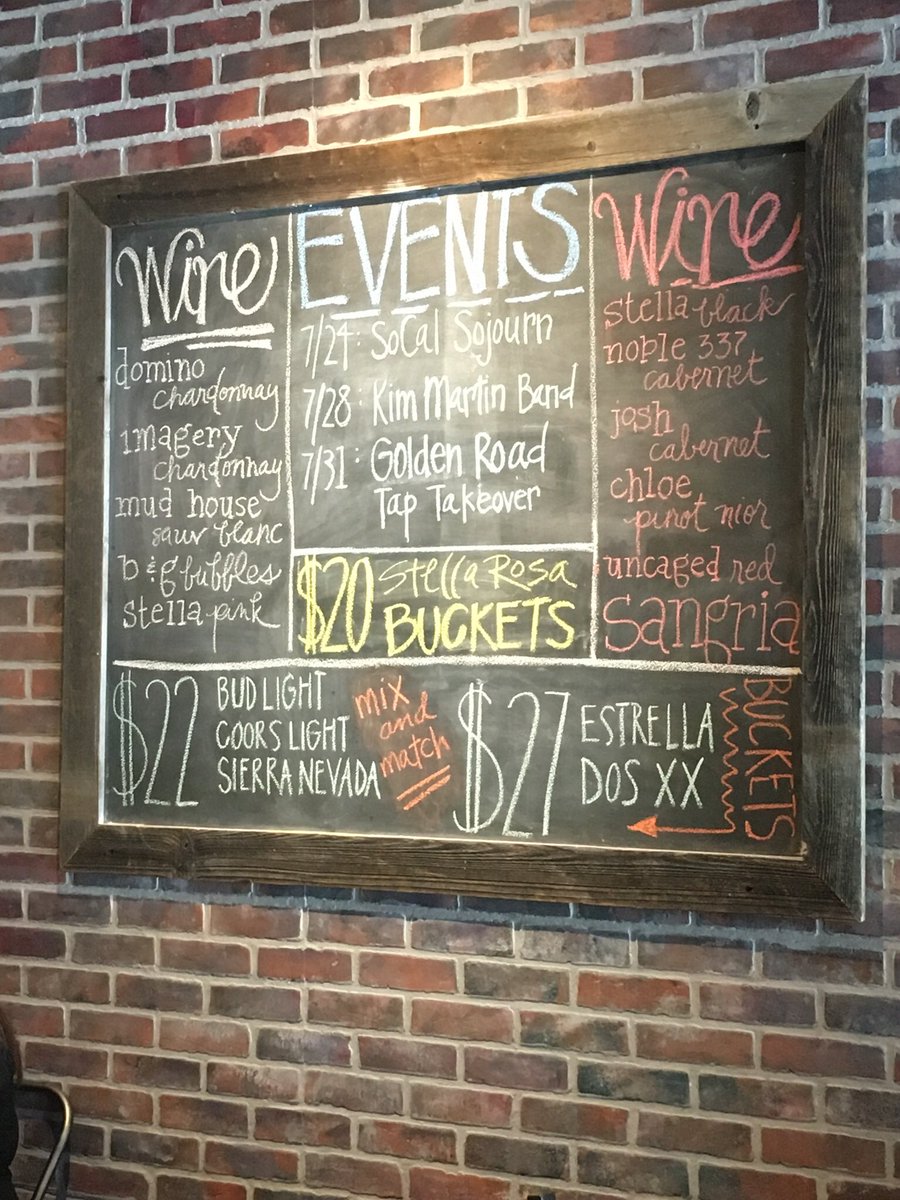 Wine
domino
chardonnay
imagery
chardonnay
mud house
sauv blanc
b & g bubbles
stella pink
EVENTS
7/24: SoCal Sojourn
7/28: Kim Martin Band
7/31: Golden Road
Tap Takeover
$20 Stella Rosa
BUCKETS
Wine
stella black
noble 337
cabernet
josh
cabernet
chloe
pinot nior
uncaged red
Sangria
$22
BUD LIGHT
COORS LIGHT
SIERRA NEVADA
mix
and
match
$27
ESTRELLA
DOS XX
BUCKETS